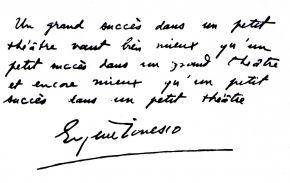 Un grand succès dans un petit
théâtre vaut bien mieux qu'un
petit succès dans un grand théâtre
et encore mieux qu'un petit
succès dans un petit théâtre
Eugène Ionesco